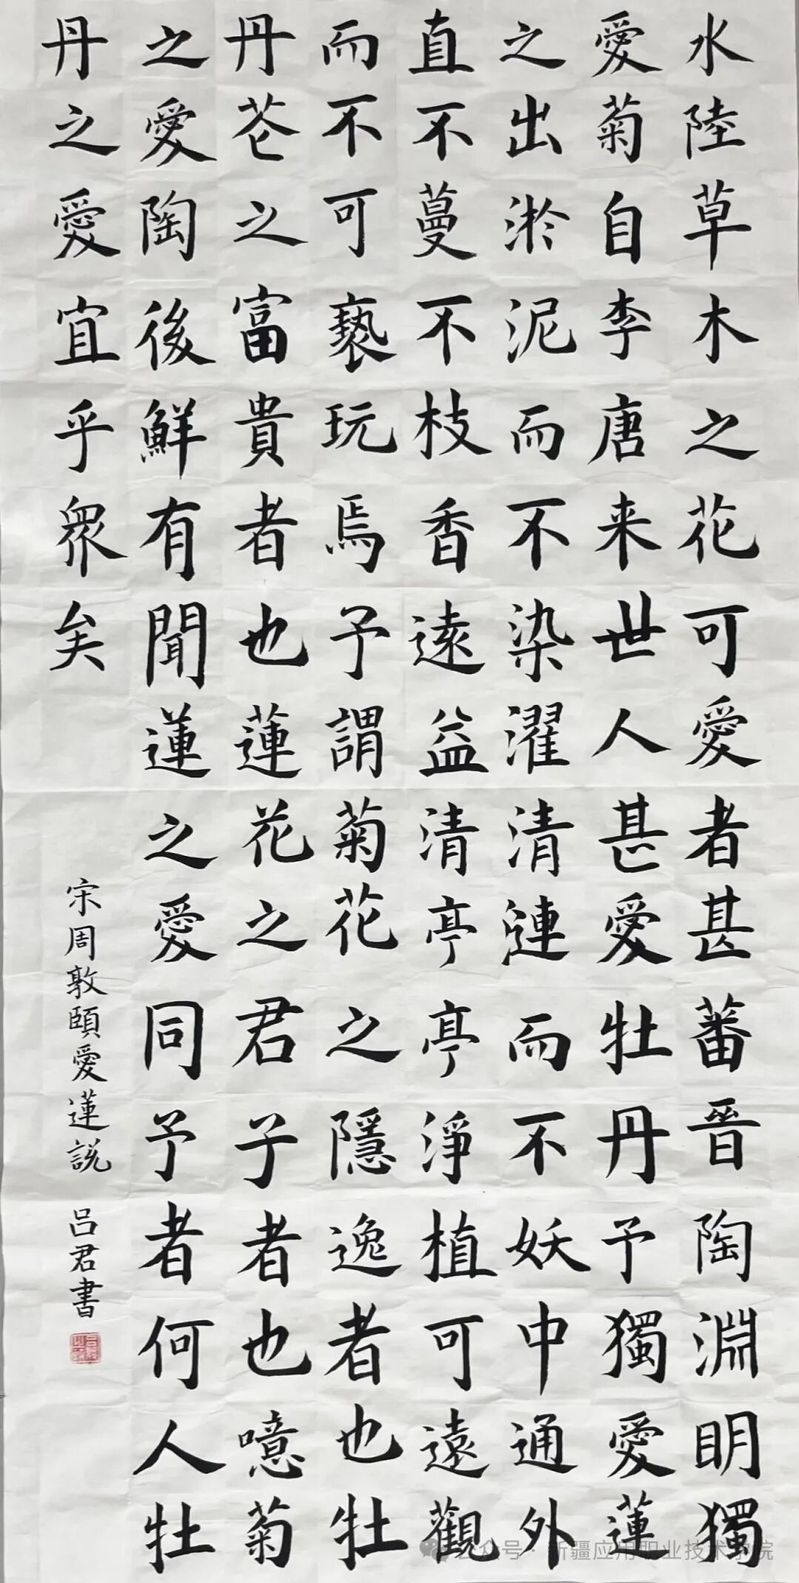 水陸草木之花可愛者甚蕃晉陶淵明獨
愛菊自李唐来世人甚愛牡丹予獨愛蓮
之出淤泥而不染濯清漣而不妖中通外
直不蔓不枝香遠益清亭亭淨植可遠觀
而不可褻玩焉予謂菊花之隱逸者也牡
丹花之富貴者也蓮花之君子者也噫菊
之愛陶後鮮有聞蓮之愛同予者何人牡
丹之愛宜乎衆矣
宋周敦頤愛蓮説 吕君書
公众号 · 新疆应用职业技术学院